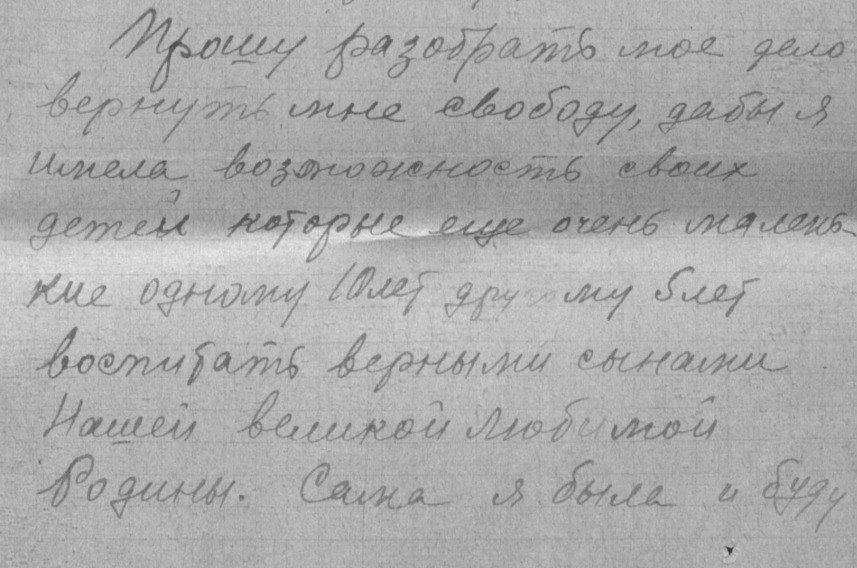 Прошу разобрать мое дело
вернуть мне свободу, дабы я
имела возможность своих
детей которые еще очень малень-
кие одному 10 лет другому 5 лет
воспитать верными сынами
Нашей великой любимой
Родины. Сама я была и буду